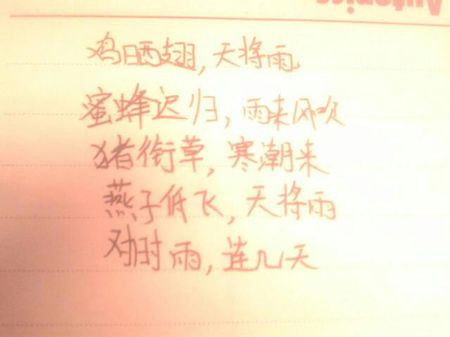 鸡晒翅,天将雨
蜜蜂迟归,雨来风吹
猪衔草,寒潮来
燕子低飞,天将雨
对时雨,连几天